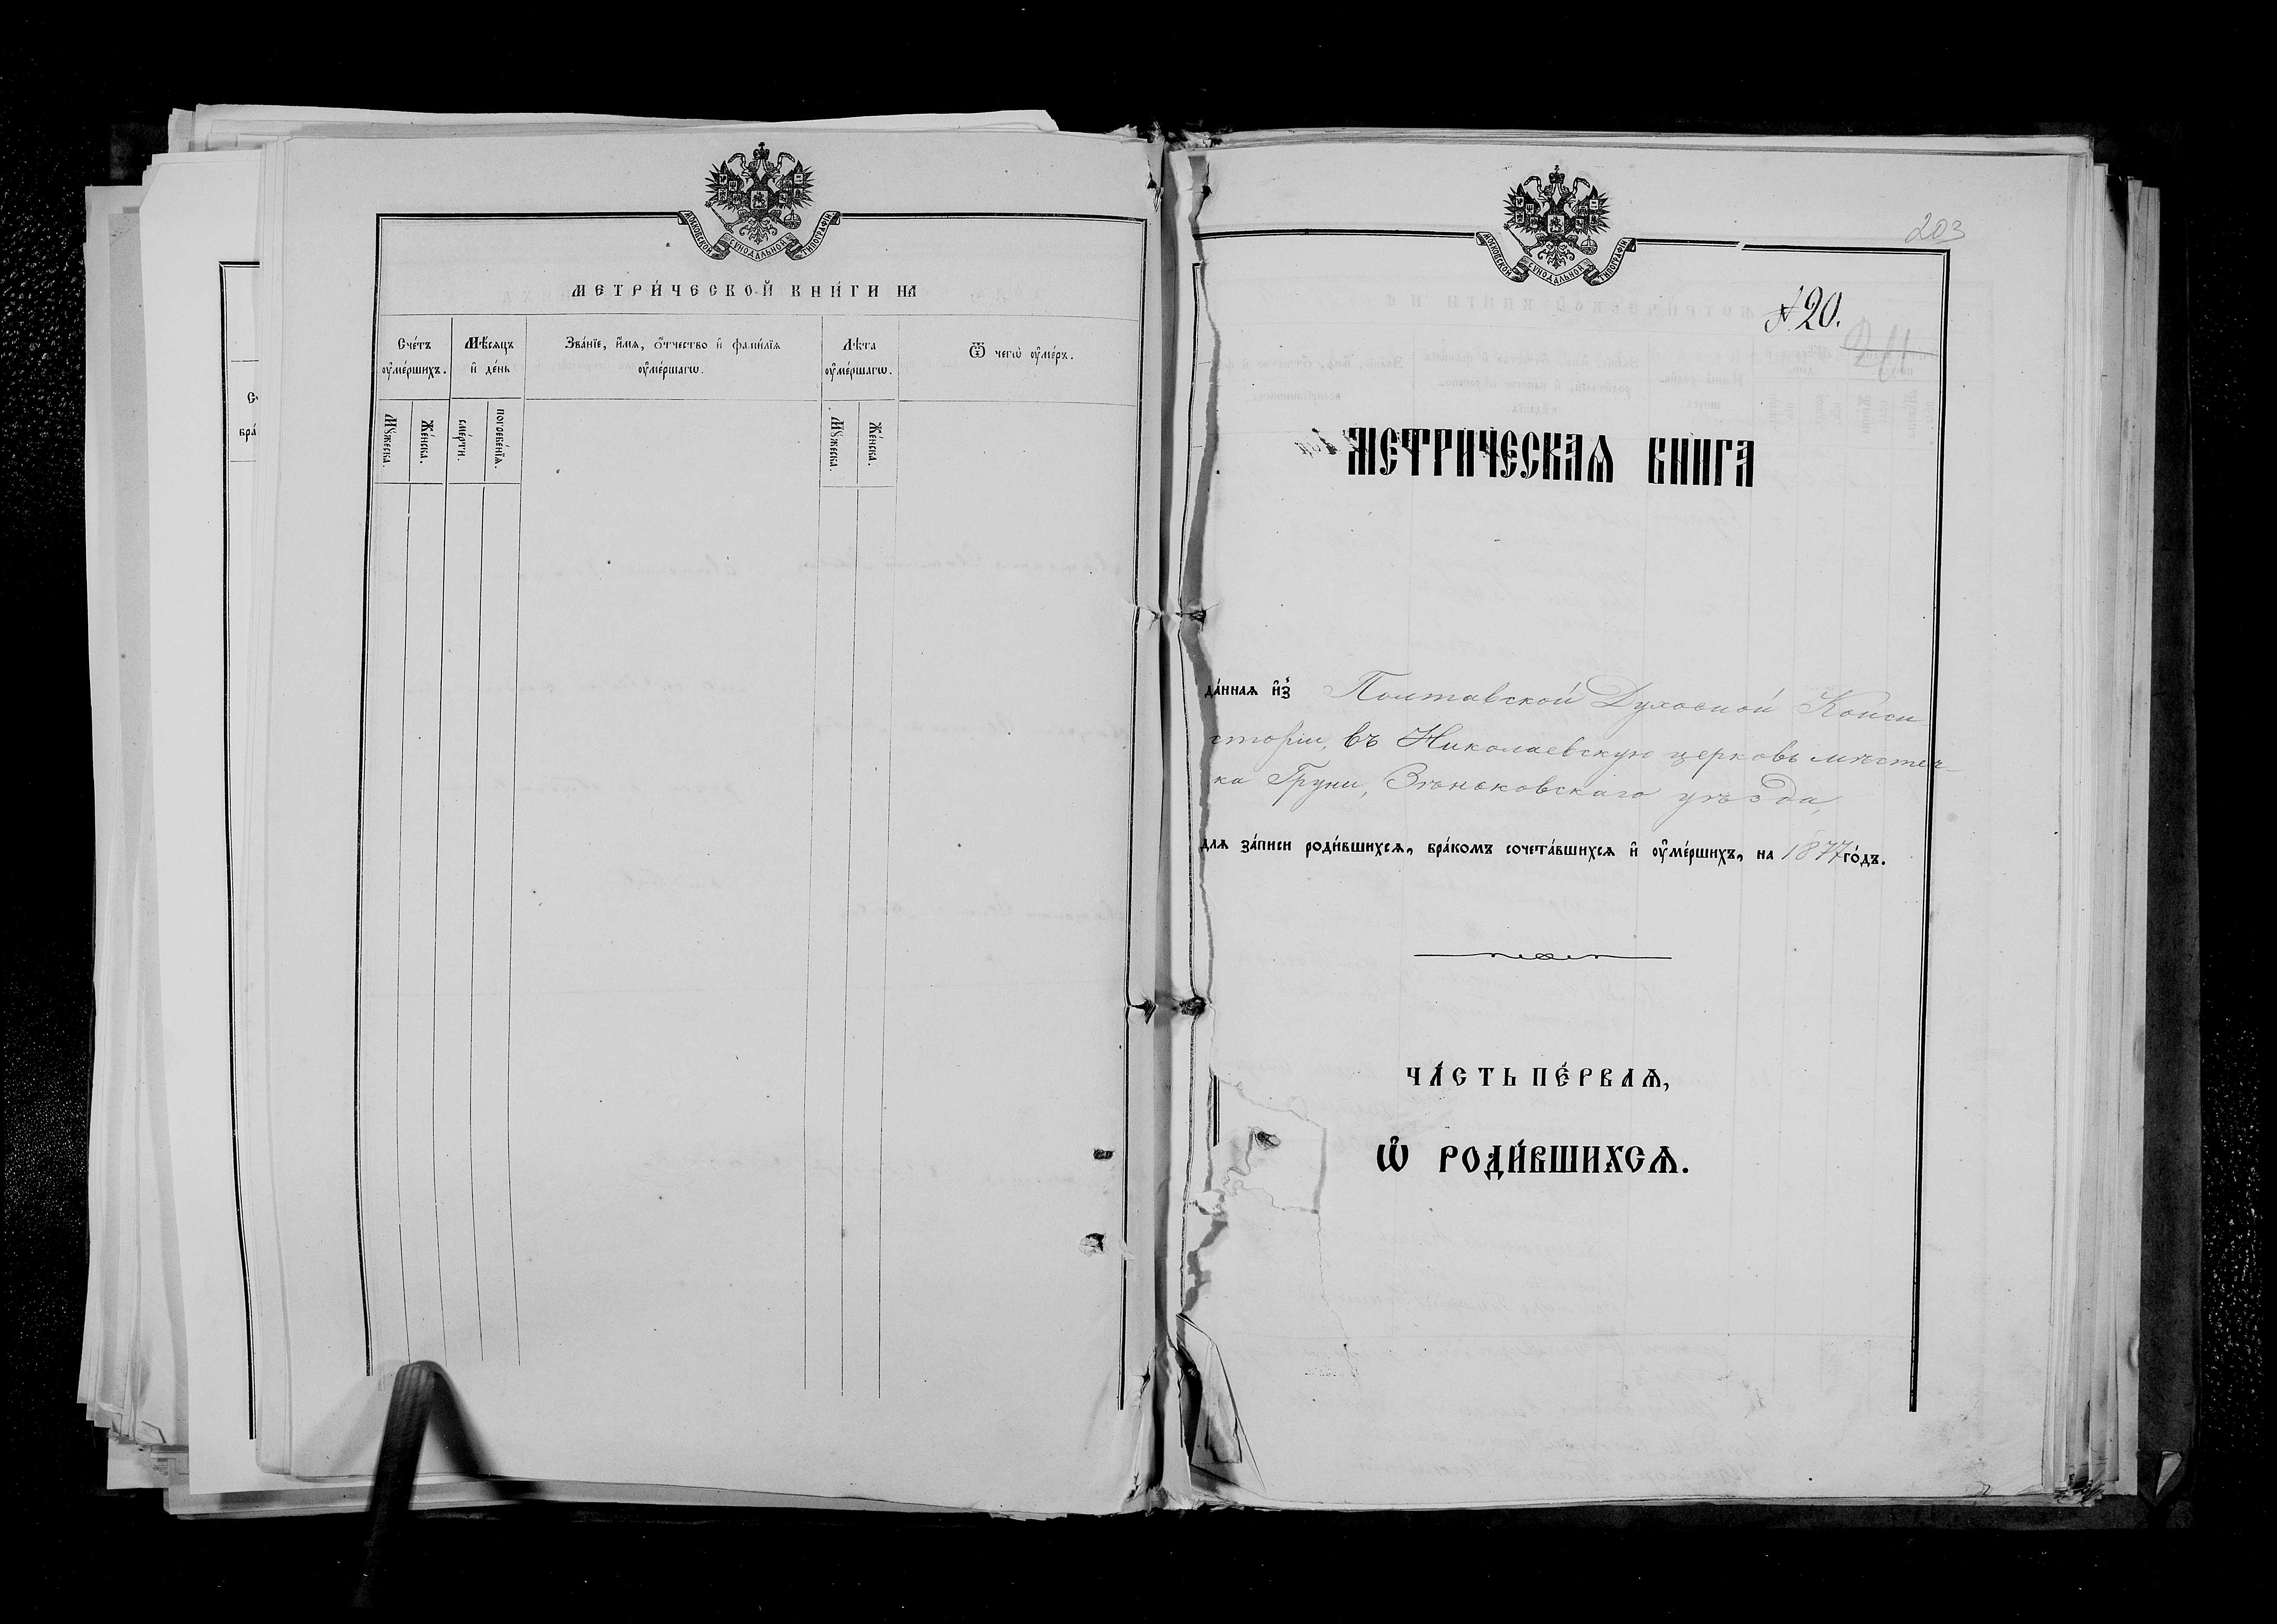 МОСКОВСКОЙ СѴНОДАЛЬНОЙ ТИПОГРАФІИ
МЕТРИ́ЧЕСКОЙ КНИ́ГИ НА
Сче́тъ ᲂу҆ме́ршихъ.
Мѣ́сяцъ и҆ де́нь
Зва́нїе, и҆́мя, ѻ҆́тчество и҆ фами́лїя ᲂу҆ме́ршагѡ.
Лѣ́та ᲂу҆ме́ршагѡ.
Ѿ чегѡ̀ ᲂу҆ме́ръ.
Мꙋ́жеска.
Же́нска.
сме́рти.
погребе́нїѧ.
Мꙋ́жеска.
Же́нска.
Сч
бра́
МОСКОВСКОЙ СѴНОДАЛЬНОЙ ТИПОГРАФІИ
203
№ 20.
МЕТРИЧЕСКАѦ КНИГА
да́ннаѧ и҆з̾ Полтавской Духовной Конси-
сторіи, въ Николаевскую церковь мѣстеч-
ка Груни, Зѣньковскаго уѣзда,
для за́писи роди́вшихсѧ, бра́комъ сочета́вшихсѧ и҆ ᲂу҆ме́ршихъ, на 1877 го́дъ.
ЧА́СТЬ ПЕ́РВАѦ,
Ѽ РОДИ́ВШИХСѦ.